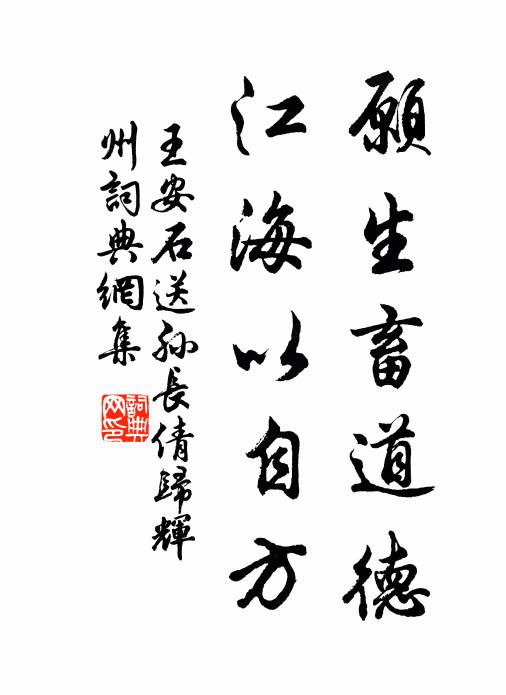 願生畜道德
江海以自方
王安石送孫長倩歸輝
州詞典網集
詞典网印